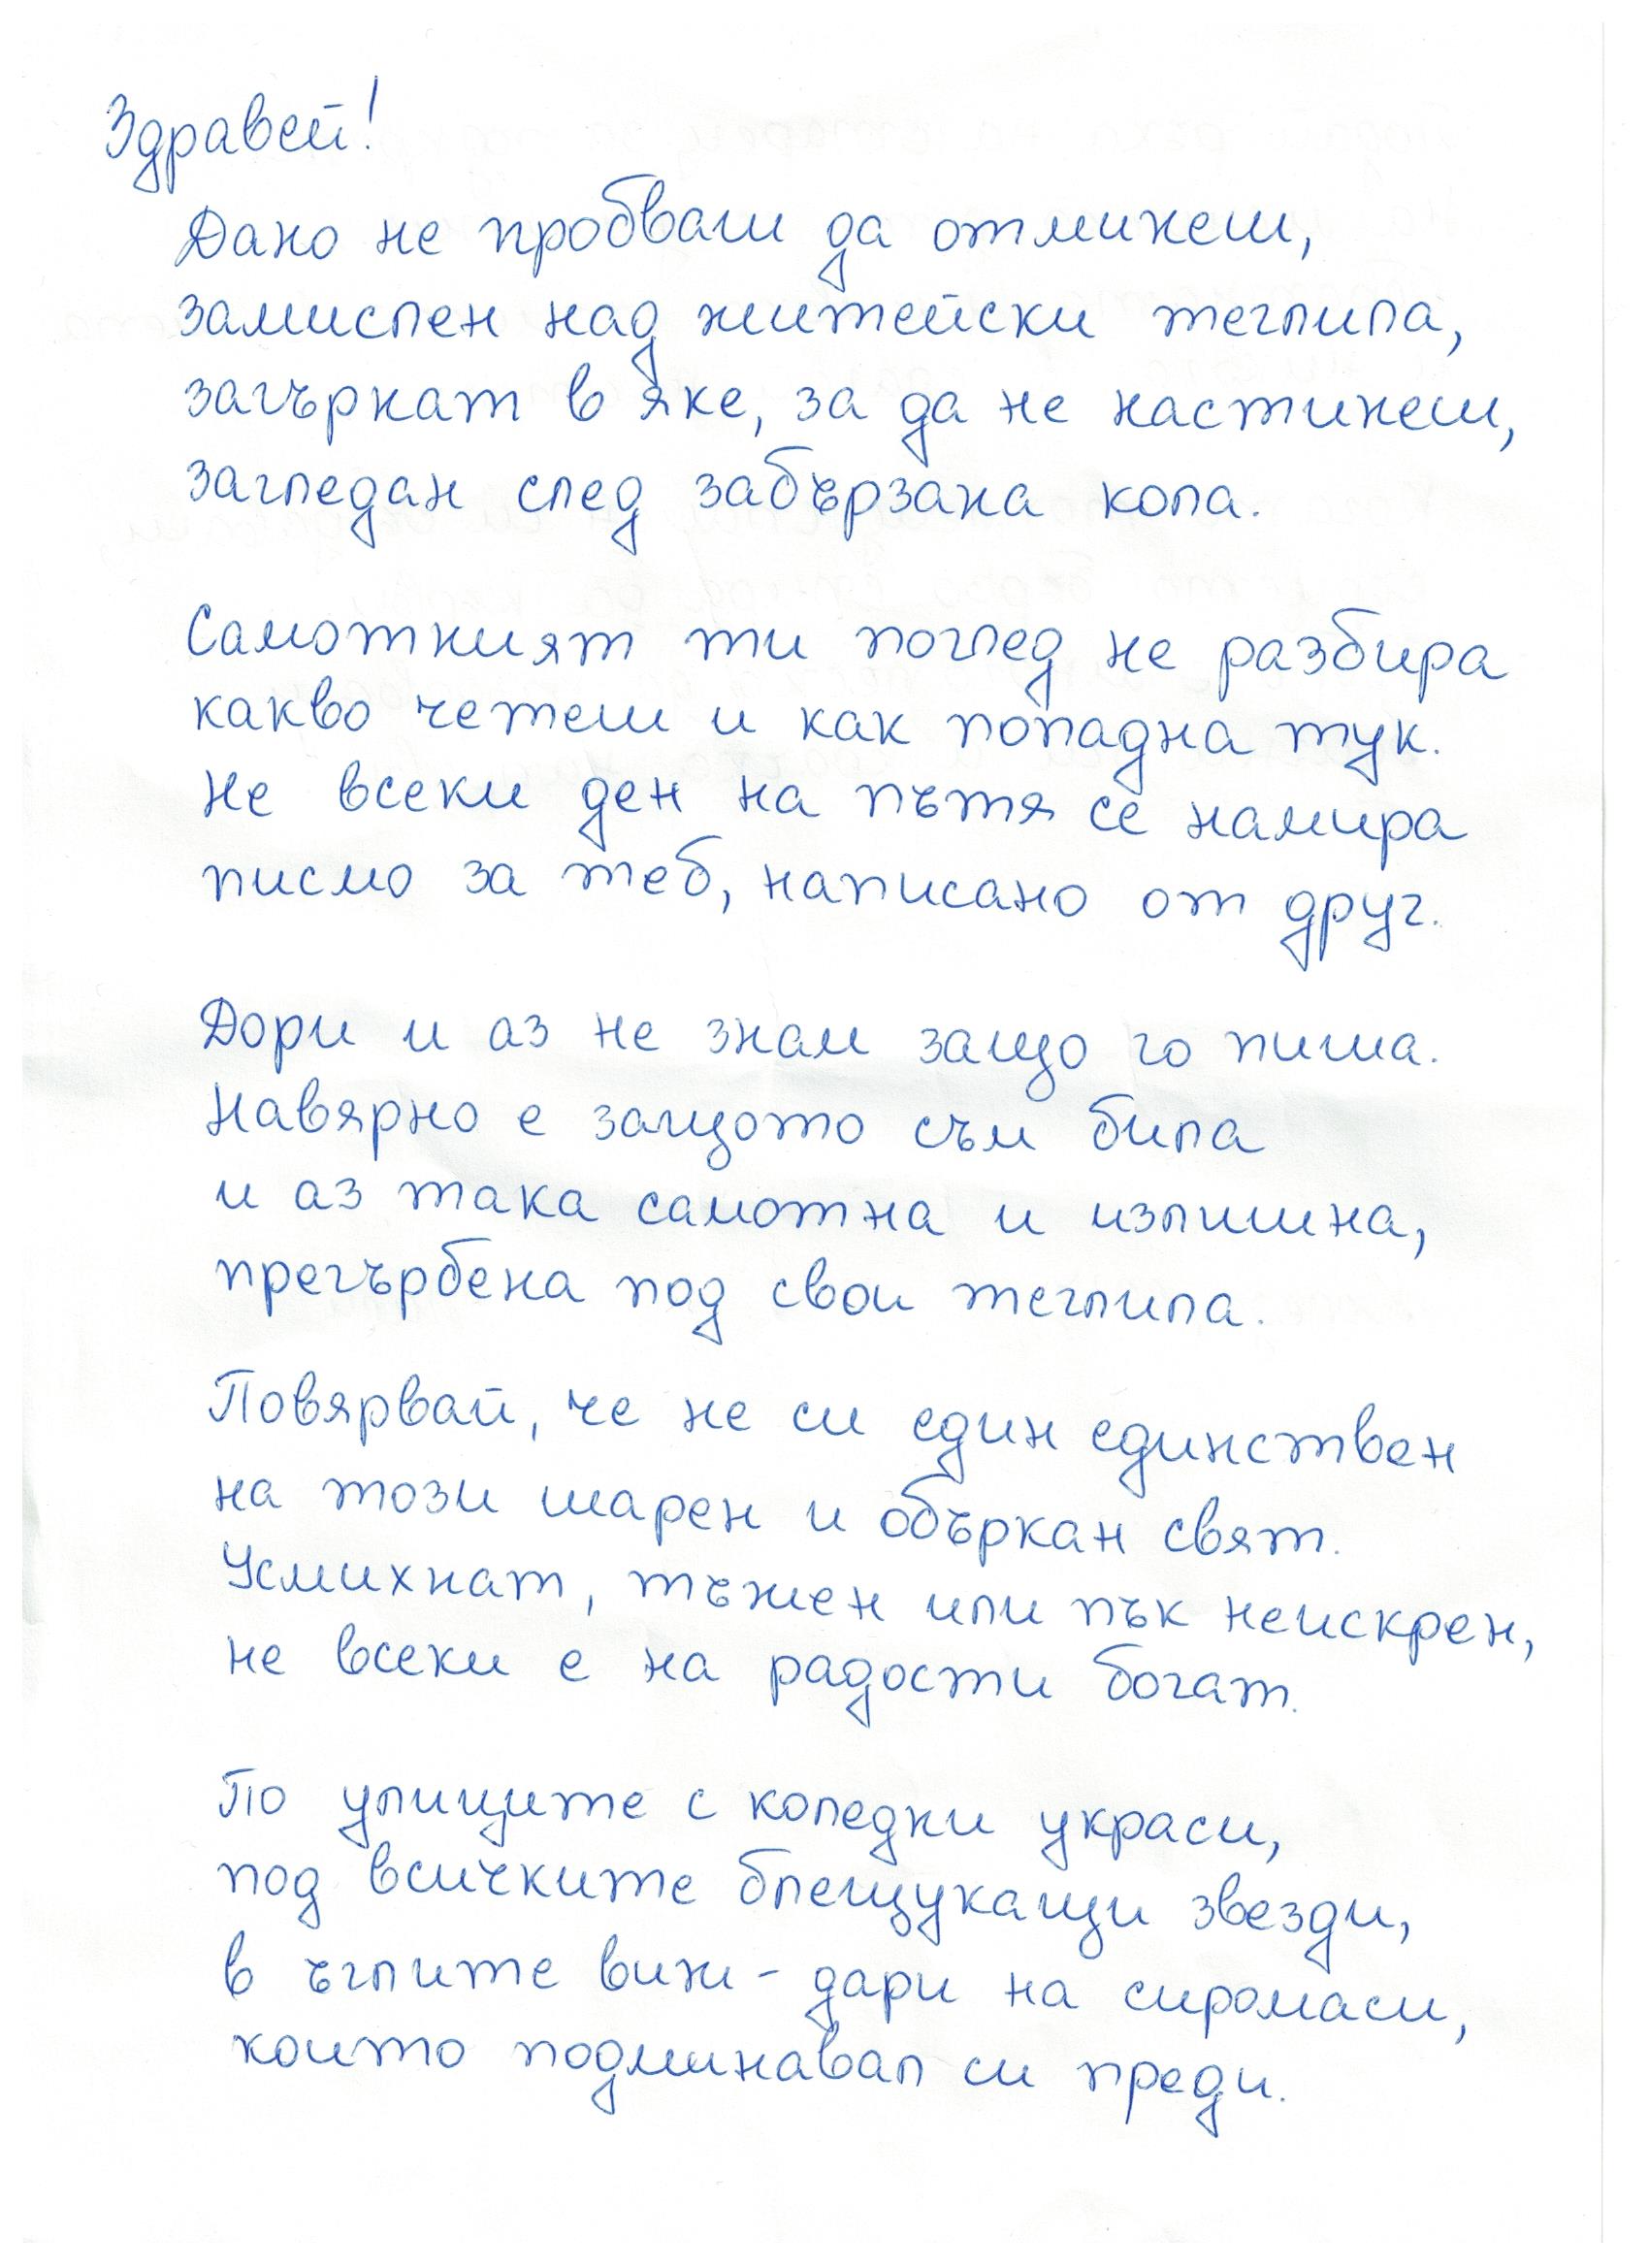 Здравей!
Дано не пробваш да отминеш,
замислен над житейски теглила,
загърнат в яке, за да не настинеш,
загледан след забързана кола.
Самотният ти поглед не разбира
какво четеш и как попадна тук.
Не всеки ден на пътя се намира
писмо за теб, написано от друг.
Дори и аз не знам защо го пиша.
Навярно е защото съм била
и аз така самотна и излишна,
прегърбена под свои теглила.
Повярвай, че не си един единствен
на този шарен и объркан свят.
Усмихнат, тъжен или пък неискрен,
не всеки е на радости богат.
По улиците с коледни украси,
под всичките блещукащи звезди,
в ъглите виж - дари на сиромаси,
които подминавал си преди.